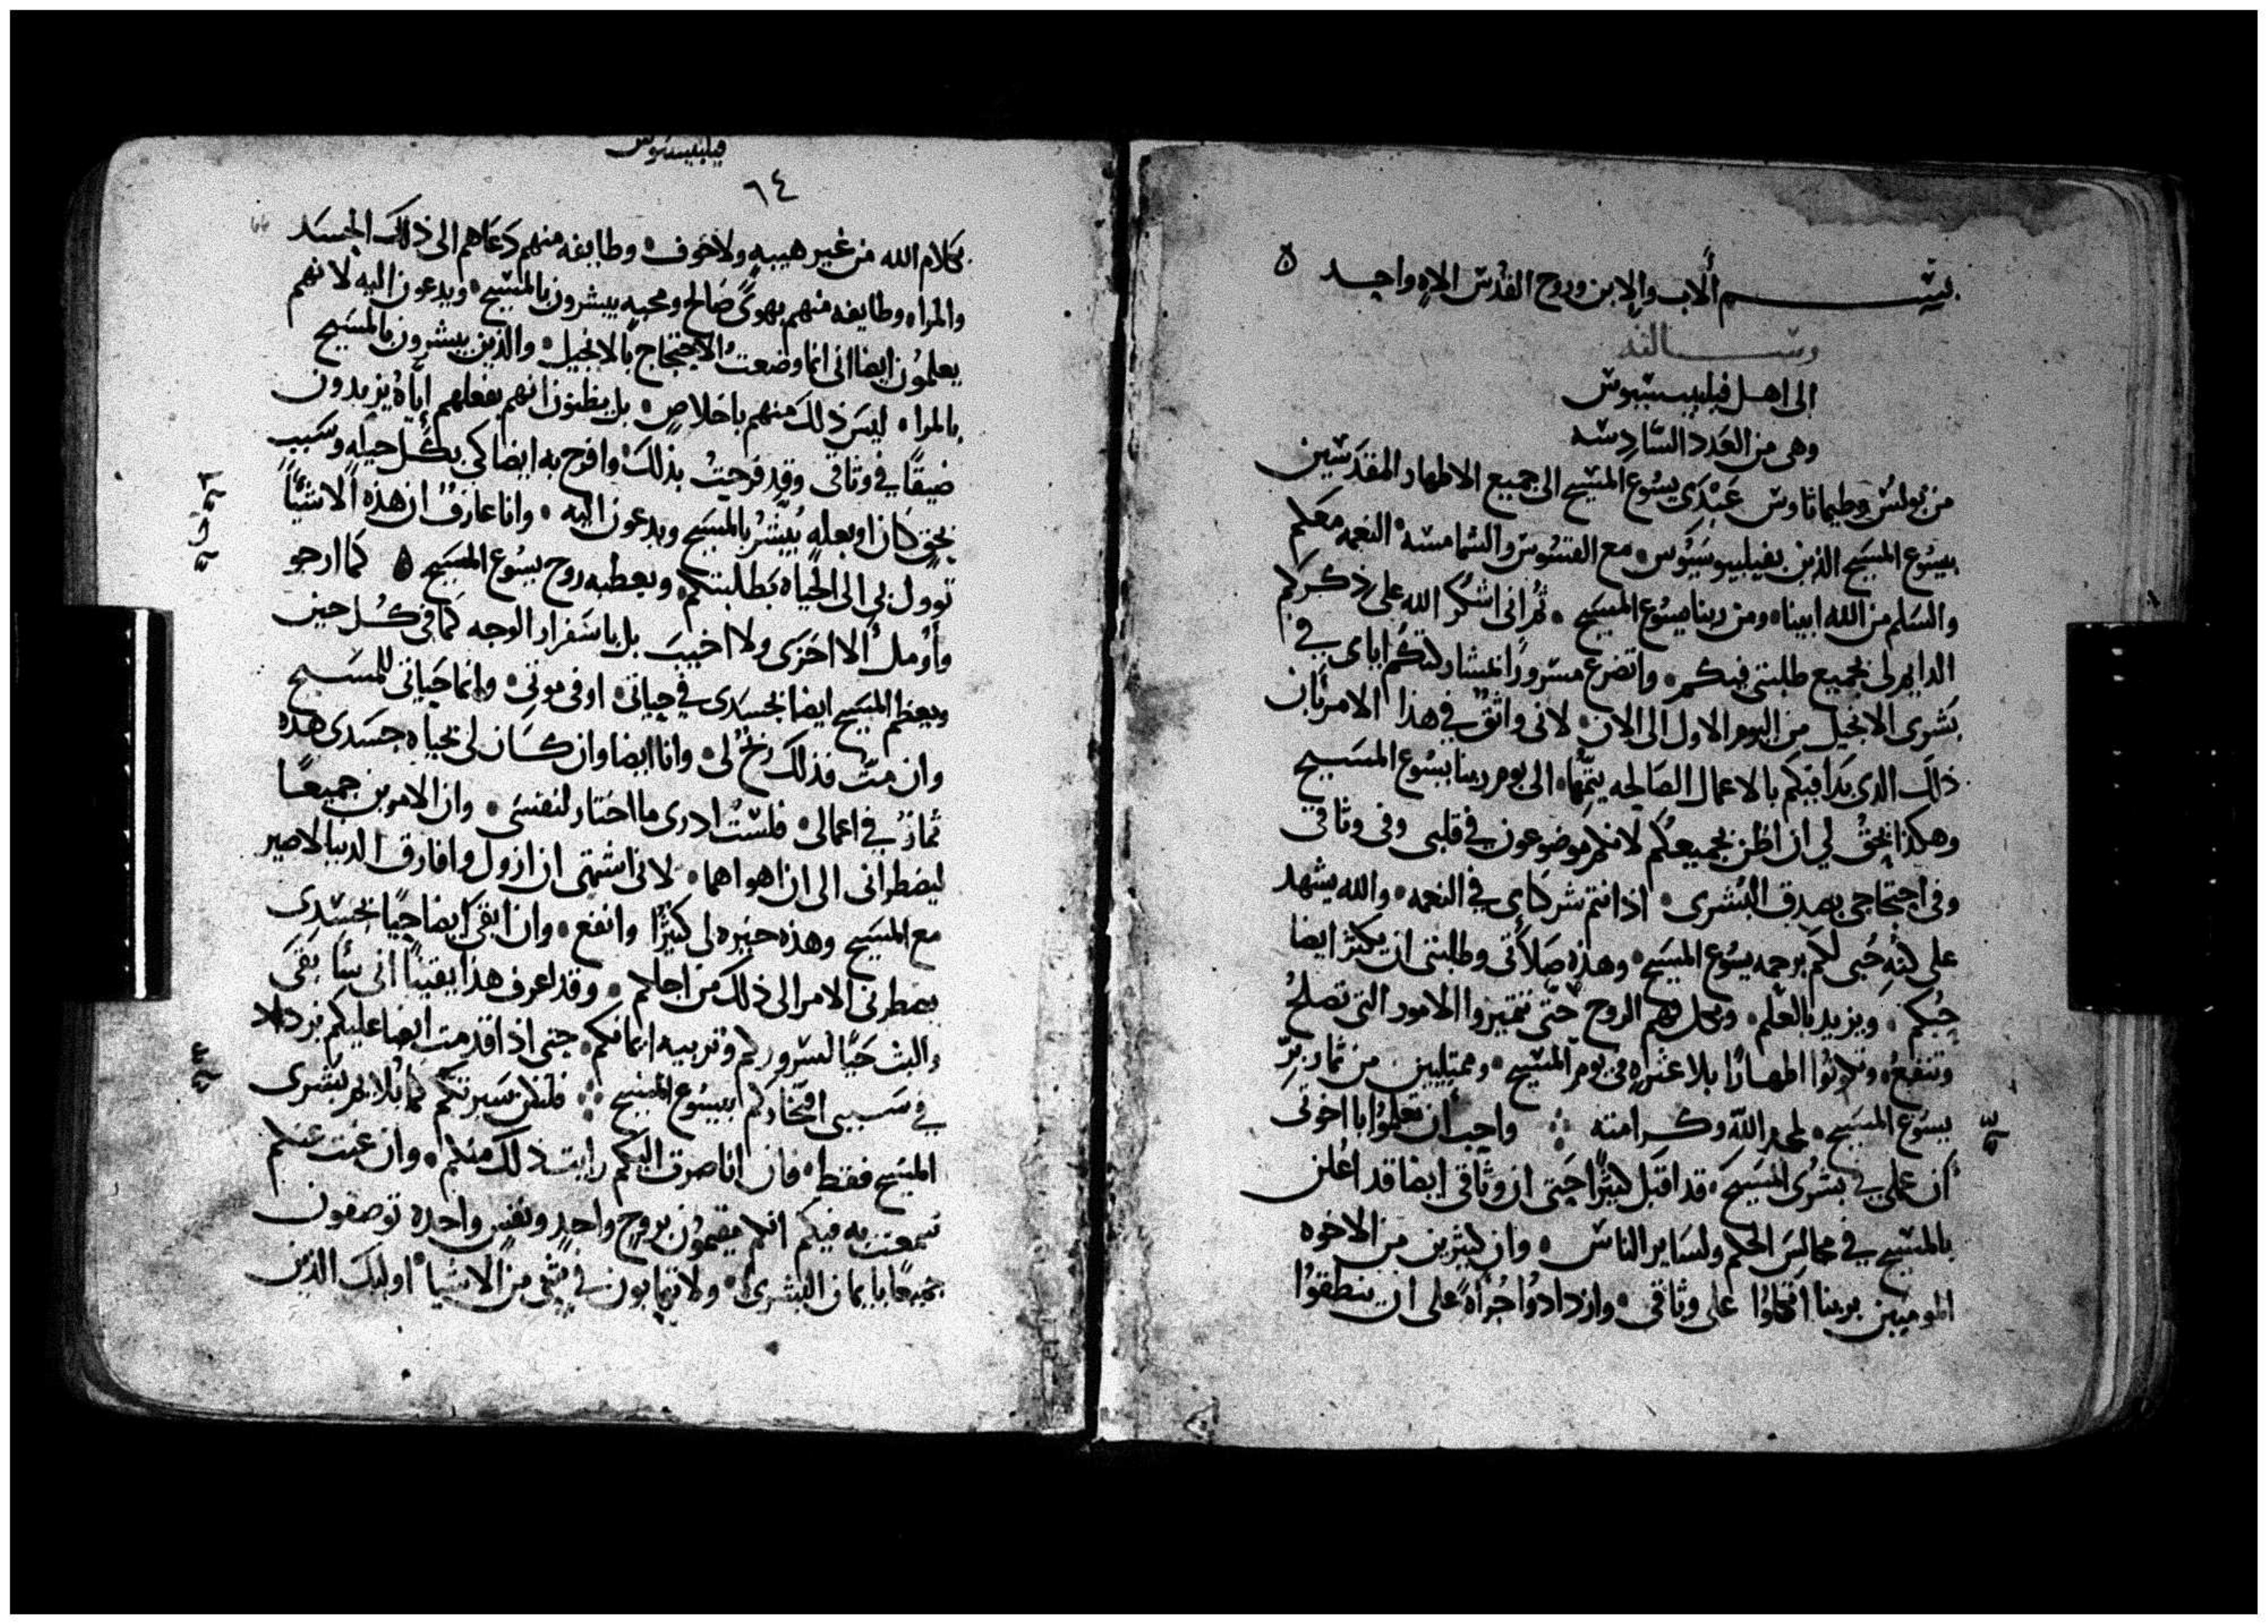 بسم الاب والابن وروح القدس الاه واحد ه
رسالته
الى اهل فيليبسيوس
وهى من العدد السادسه
من بولس وطيماثاوس عبدى يسوع المسيح الى جميع الاطهار المقدسين
بيسوع المسيح الذين بفيليبوسيوس مع القسوس والشمامسه النعمه معكم
والسلم من الله ابينا ومن ربنا يسوع المسيح ثم انى اشكر الله على ذكركم
الدايم لى بجميع طلبتى فيكم واتضرع مسرورًا لمشاركتكم اياى فى
بشرى الانجيل من اليوم الاول الى الان لانى واثق فى هذا الامر بان
ذلك الدى بدا فيكم بالاعمال الصالحه يتمها الى يوم ربنا يسوع المسيح
وهكذا يحق لي ان اظن بجميعكم لانكم موضوعون في قلبى وفى وثاقى
وفى احتجاجى بصدق البشرى اذ انتم شركاى فى النعمه والله يشهد
على كنه حبى لكم برحمه يسوع المسيح وهذه صلاتى وطلبتى ان يكثر ايضا
حبكم ويزيد بالعلم وبكل فهم الروح حتى تتميزوا الامور التى تصلح
وتنفع وتكونوا اطهارًا بلا عثره فى يوم المسيح وممتليين من ثمار بر
يسوع المسيح لمجد الله وكرامته واحب ان تعلموا يا اخوتى
ان عملى فى بشرى المسيح قد اقبل كثيرًا حتى ان وثاقى ايضا قد اعلن
بالمسيح في مجالس الحكم ولساير الناس وان كثيرين من الاخوه
المومنين بربنا اتكلوا على وثاقى وازدادوا جُرأة على ان ينطقوا
فيليبسيوس
٦٤
بكلام الله من غير هيبه ولا خوف وطايفه منهم دعاهم الى ذلك الحسد
والمراء وطايفه منهم بهوى صالح ومحبه يبشرون بالمسيح ويدعون اليه لانهم
يعلمون ايضا انى انما وضعت للاحتجاج بالانجيل والذين يبشرون بالمسيح
بالمراء ليس ذلك منهم باخلاص بل يظنون انهم بفعلهم اياه يزيدون
ضيقًا في وثاقى وقد فرحت بذلك وافرح به ايضا كى بكل حيله وسبب
بحق كان او بعله يُبشر بالمسيح ويدعون اليه وانا عارف ان هذه الاشيا
توول بى الى الحياه بطلبتكم وبعطيه روح يسوع المسيح ه كما ارجو
واومل الا اخزى ولا اخيب بل باسفرار الوجه كما فى كل حين
ويعظم المسيح ايضا بجسدى في حياتى او فى موتى وانما حياتى المسيح
وان مت فذلك ربح لى وانا ايضا وان كان لى بحياه جسدى هذه
ثمار في اعمالى فلست ادرى ما اختار لنفسى وان الامرين جميعًا
ليضطرانى الى ان اهواهما لانى اشتهى ان ازول وافارق الدنيا لاصير
مع المسيح وهذه خيره لى كثيرًا وانفع وان ابقى ايضا حيًا بجسدى
يضطرنى الامر الى ذلك من اجلكم وقد اعرف هذا يقينًا انى سابقى
والبث حيًا لسروركم وتربيه ايمانكم حتى اذا قدمت ايضا عليكم يزداد
في سببى افتخاركم بيسوع المسيح فلتكن سيرتكم كما يلايم بشرى
المسيح فقط فان انا صرت اليكم رايت ذلك منكم وان غبت عنكم
سمعت به فيكم انكم مقيمون بروح واحد ونفس واحده توصفون
جميعًا بايمان البشرى ولا تهابون في شي من الاشيا اوليك الذين